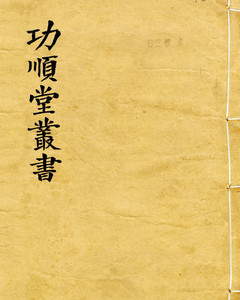 功順堂叢書